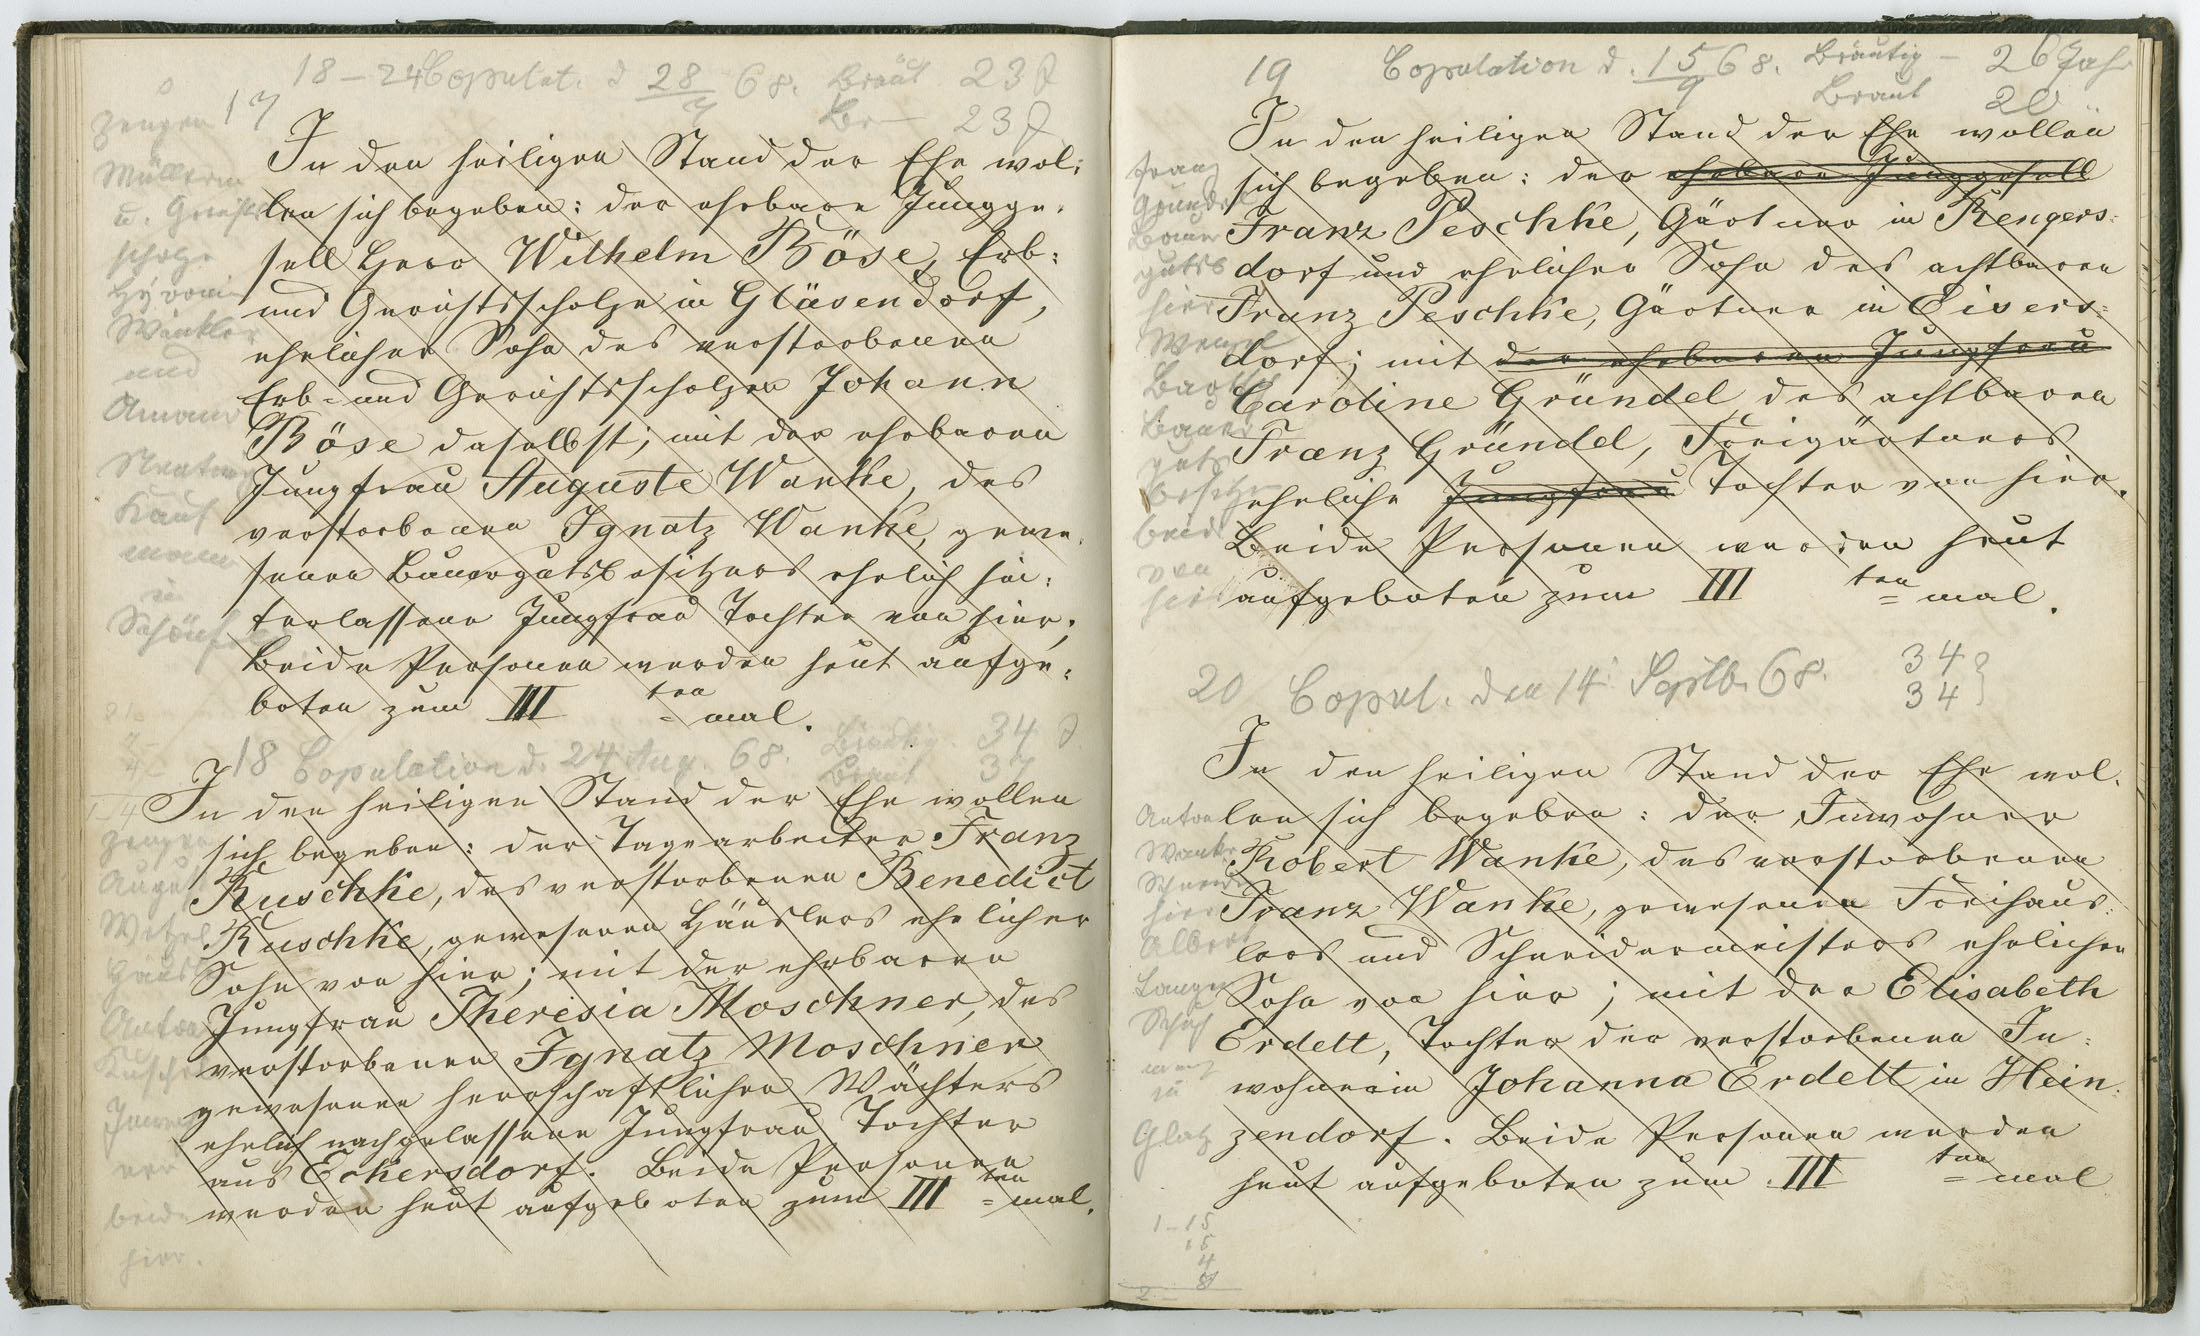 18 – 24 Copulat. d 28/7 68. Bräut. 23 J
17 Br – 23 J
In den heiligen Stand der Ehe wol:
len sich begeben: der ehrbare Jungge:
sell Herr Wilhelm Böse, Erb:
und Gerichtsscholze in Gläsendorf,
ehelicher Sohn des verstorbenen
Erb- und Gerichtsscholzen Johann
Böse daselbst; mit der ehrbaren
Jungfrau Auguste Wanke, des
verstorbenen Ignatz Wanke, gewe:
senen Bauergutsbesitzers ehelich hin:
terlassene Jungfrau Tochter von hier;
Beide Personen werden heut aufge:
boten zum III ten = mal.
Zeugen
Müllerm
u. Gerichts
scholze
Winkler
und
Amand
Kauf
mann
in
18 Copulation d. 24 Aug. 68. Bräutig. 34 J
Braut 37
In den heiligen Stand der Ehe wollen
sich begeben: der Tagearbeiter Franz
Kuschke, des verstorbenen Benedict
Kuschke, gewesenen Häuslers ehelicher
Sohn von hier; mit der ehrbaren
Jungfrau Theresia Moschner, des
verstorbenen Ignatz Moschner
gewesenen herrschaftlichen Wächters
ehelich nachgelassene Jungfrau Tochter
aus Eckersdorf. Beide Personen
werden heut aufgeboten zum III ten = mal.
Zeugen
August
Witzel
Häusl
Anton
Kuschke
Inwoh
ner
beide
hier.
19 Copulation d. 15/9 68. Bräutig – 26 Jahr
Braut 20 "
In den heiligen Stand der Ehe wollen
sich begeben: der ehrbare Junggesell
Franz Peschke, Gärtner in Rengers:
dorf und ehelicher Sohn des achtbaren
Franz Peschke, Gärtner in Eisers:
dorf; mit der ehrbaren Jungfrau
Caroline Gründel des achtbaren
Franz Gründel, Freigärtners
eheliche Jungfrau Tochter von hier.
Beide Personen werden heut
aufgeboten zum III ten = mal.
Franz
Gründel
Bauer
guts
hier
Wenzel
Bauer
guts
besitzer
beide
von
hier
20 Copul. den 14 Septb. 68. 34
34
In den heiligen Stand der Ehe wol:
len sich begeben: der Inwohner
Robert Wanke, des verstorbenen
Franz Wanke, gewesenen Freihäus:
lers und Schneidermeisters ehelicher
Sohn von hier; mit der Elisabeth
Erdelt, Tochter der verstorbenen In:
wohnerin Johanna Erdelt in Hein:
zendorf. Beide Personen werden
heut aufgeboten zum III ten = mal
Anton
Wanke
Schneider
hier
Albert
Langer
Schuh
zu
Glatz
1 – 15
15
4